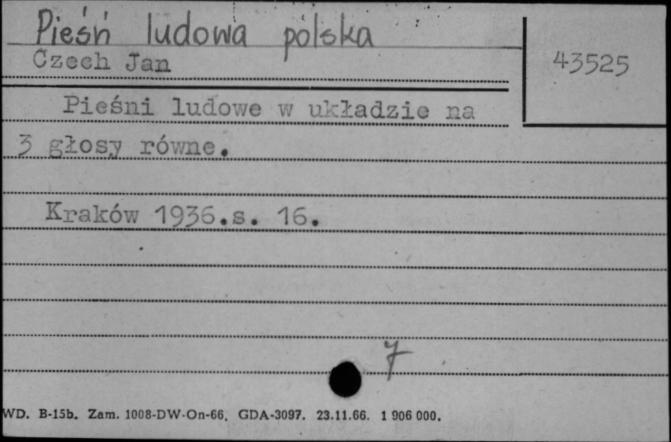 Pieśń ludowa polska
Czech Jan
43525
Pieśni ludowe w układzie na
3 głosy równe.
Kraków 1936.s. 16.
7
WD. B-15b. Zam. 1008-DW-On-66. GDA-3097. 23.11.66. 1 906 000.